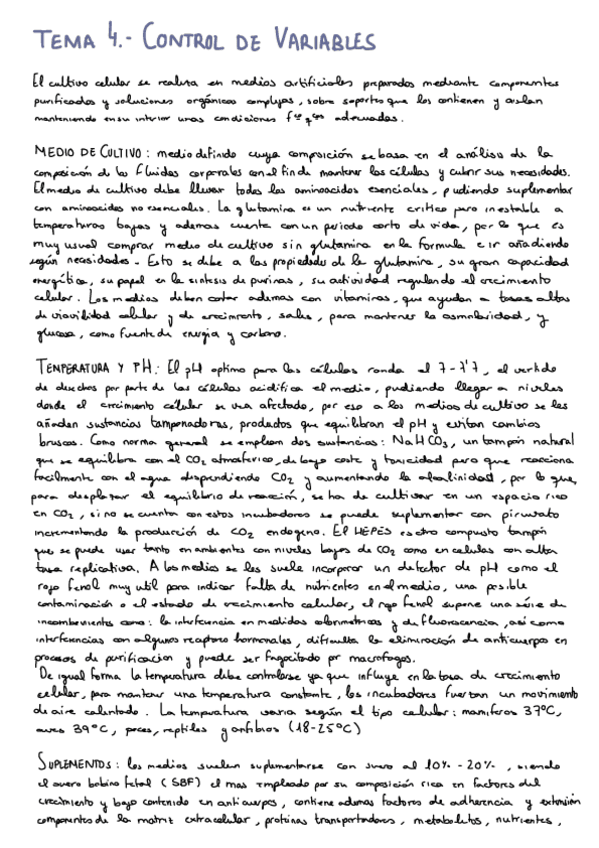 TEMA 4.- CONTROL DE VARIABLES
El cultivo celular se realiza en medios artificiales preparados mediante componentes
purificados y soluciones orgánicas complejas, sobre soportes que los contienen y aislan
manteniendo en su interior unas condiciones fcas qcas adecuadas.
MEDIO DE CULTIVO: medio definido cuya composición se basa en el análisis de la
composición de los fluidos corporales con el fin de mantener las células y cubrir sus necesidades.
El medio de cultivo debe llevar todos los aminoácidos esenciales, pudiendo suplementar
con aminoácidos no esenciales. La glutamina es un nutriente crítico pero inestable a
temperaturas bajas y ademas cuenta con un periodo corto de vida, por lo que es
muy usual comprar medio de cultivo sin glutamina en la formula e ir añadiendo
según necesidades. Esto se debe a las propiedades de la glutamina, su gran capacidad
energética, su papel en la sintesis de purinas, su actividad regulando el crecimiento
celular. Los medios deben contar ademas con vitaminas, que ayudan a tasas altas
de viavilidad celular y de crecimiento, sales, para mantener la osmolaridad, y
glucosa, como fuente de energia y carbono.
TEMPERATURA Y PH: El pH optimo para las células ronda el 7-7'7, el vertido
de desechos por parte de las células acidifica el medio, pudiendo llegar a niveles
donde el crecimiento celular se vea afectado, por eso a los medios de cultivo se les
añaden sustancias tamponadoras, productos que equilibran el pH y evitan cambios
bruscos. Como norma general se emplean dos sustancias: NaHCO3, un tampón natural
que se equilibra con el CO2 atmosférico, de bajo coste y toxicidad pero que reacciona
facilmente con el agua desprendiendo CO2 y aumentando la alcalinidad, por lo que,
para desplazar el equilibrio de reacción, se ha de cultivar en un espacio rico
en CO2, si no se cuenta con estos incubadores se puede suplementar con piruvato
incrementando la producción de CO2 endogeno. El HEPES es otro compuesto tampón
que se puede usar tanto en ambientes con niveles bajos de CO2 como en celulas con alta
tasa replicativa. A los medios se les suele incorporar un detector de pH como el
rojo fenol muy util para indicar falta de nutrientes en el medio, una posible
contaminación o el estado de crecimiento celular, el rojo fenol supone una série de
inconvenientes como: la interferencia en medidas colorimetricas y de fluorescencia, así como
interferencias con algunos receptores hormonales, dificulta la eliminación de anticuerpos en
procesos de purificacion y puede ser fagocitado por macrofagos.
De igual forma la temperatura debe controlarse ya que influye en la tasa de crecimiento
celular, para mantener una temperatura constante, los incubadores fuerzan un movimiento
de aire calentado. La temperatura varia según el tipo celular: mamiferos 37ºC,
aves 39ºC, peces, reptiles y anfibios (18-25ºC)
SUPLEMENTOS: los medios suelen suplementarse con suero al 10% - 20%, siendo
el suero bobino fetal (SBF) el mas empleado por su composición rica en factores del
crecimiento y bajo contenido en anticuerpos, contiene ademas factores de adherencia y extensión
componentes de la matriz extracelular, proteinas transportadoras, metabolitos, nutrientes,